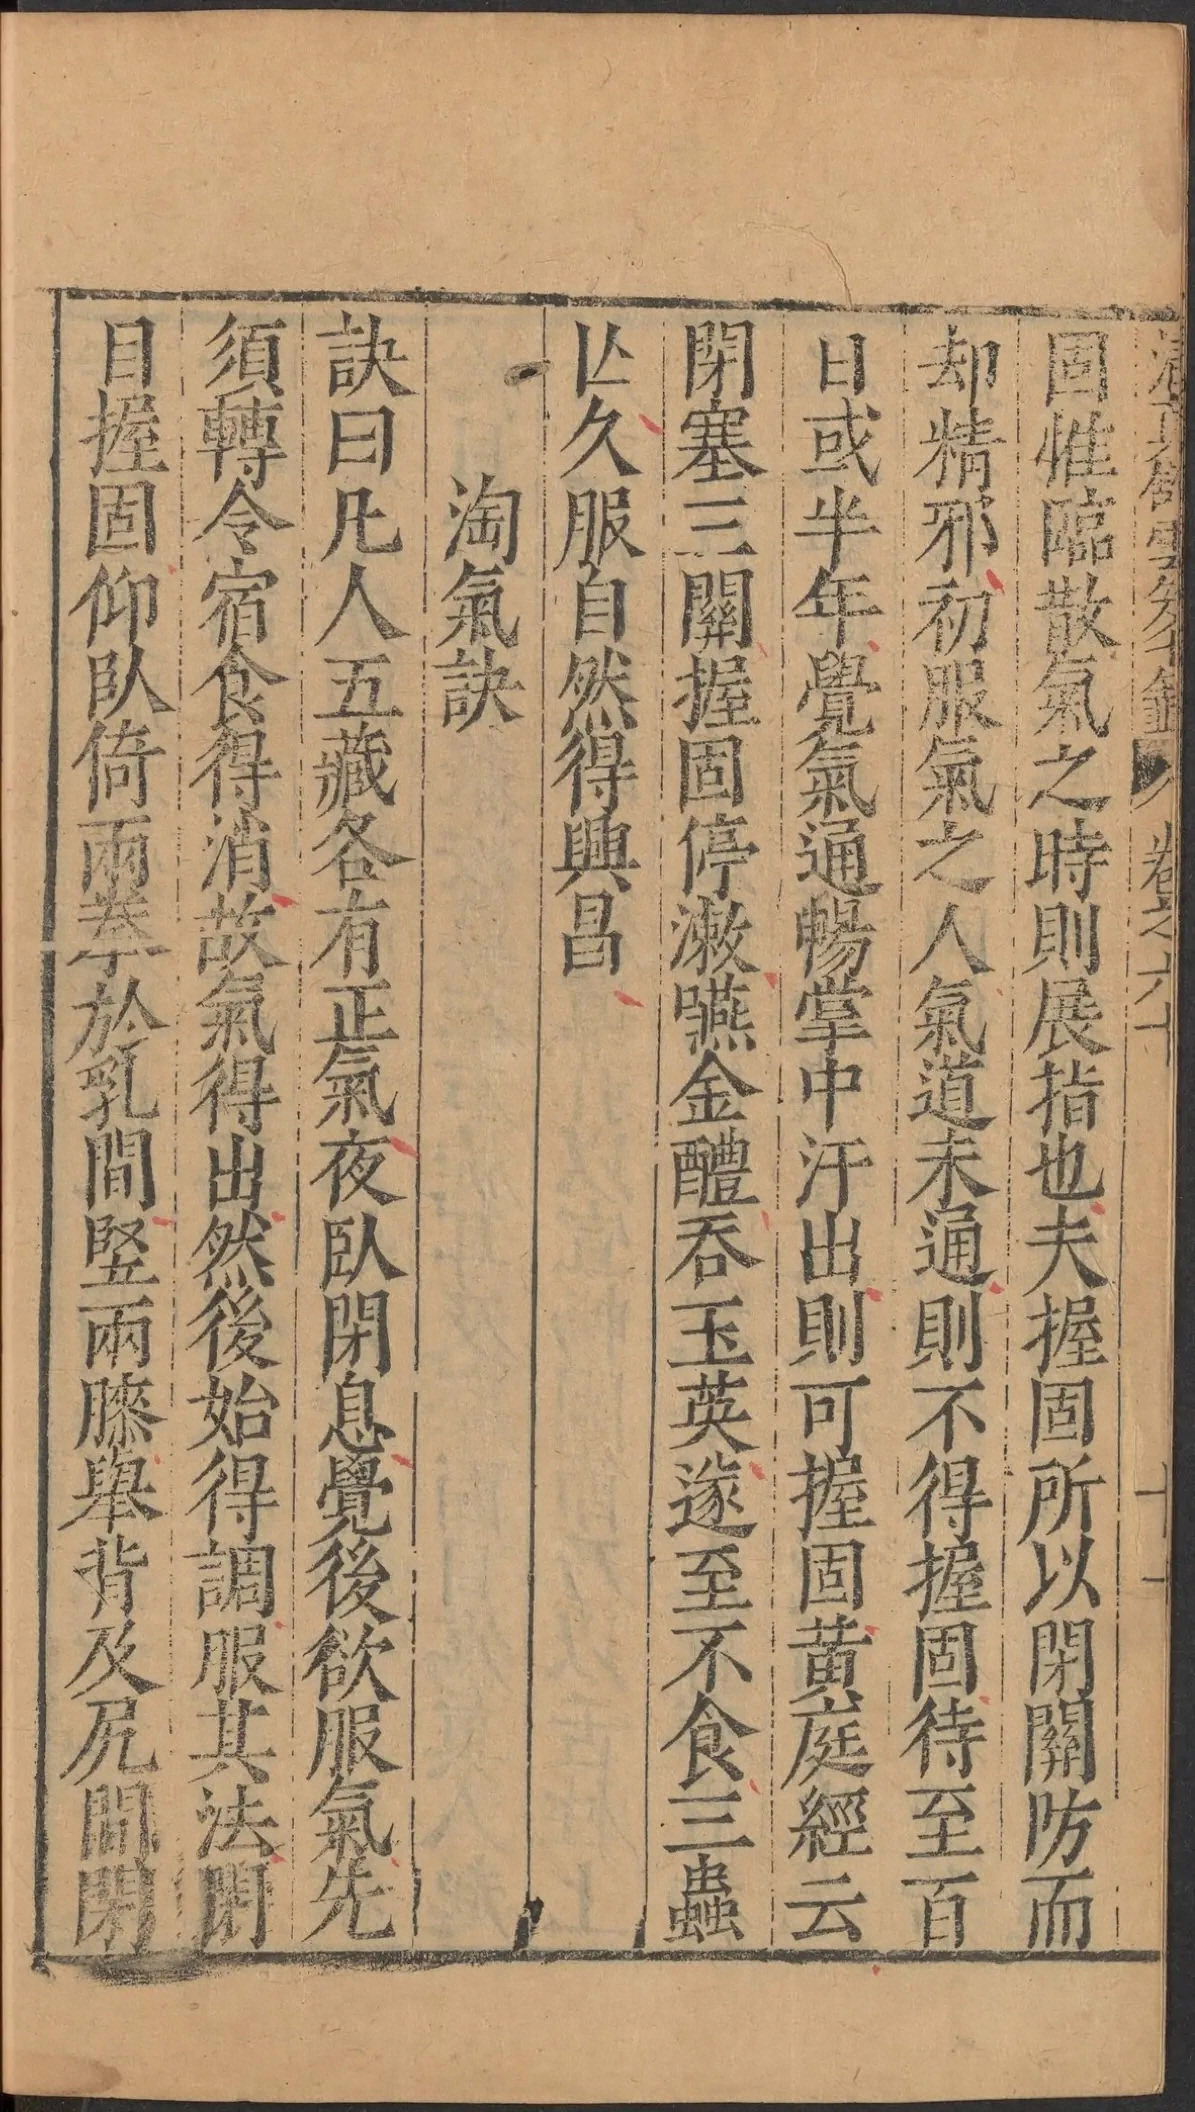 清真館雲笈七籤 卷之六十 十一
固惟臨散氣之時則展指也夫握固所以閉關防而
却精邪初服氣之人氣道未通則不得握固待至百
日或半年覺氣通暢掌中汗出則可握固黄庭經云
閉塞三關握固停漱嚥金醴吞玉英遂至不食三蟲
亾久服自然得興昌
淘氣訣
訣曰凡人五藏各有正氣夜臥閉息覺後欲服氣先
須轉令宿食得消故氣得出然後始得調服其法閉
目握固仰臥倚兩拳於乳間竪兩膝舉背及尻間閉